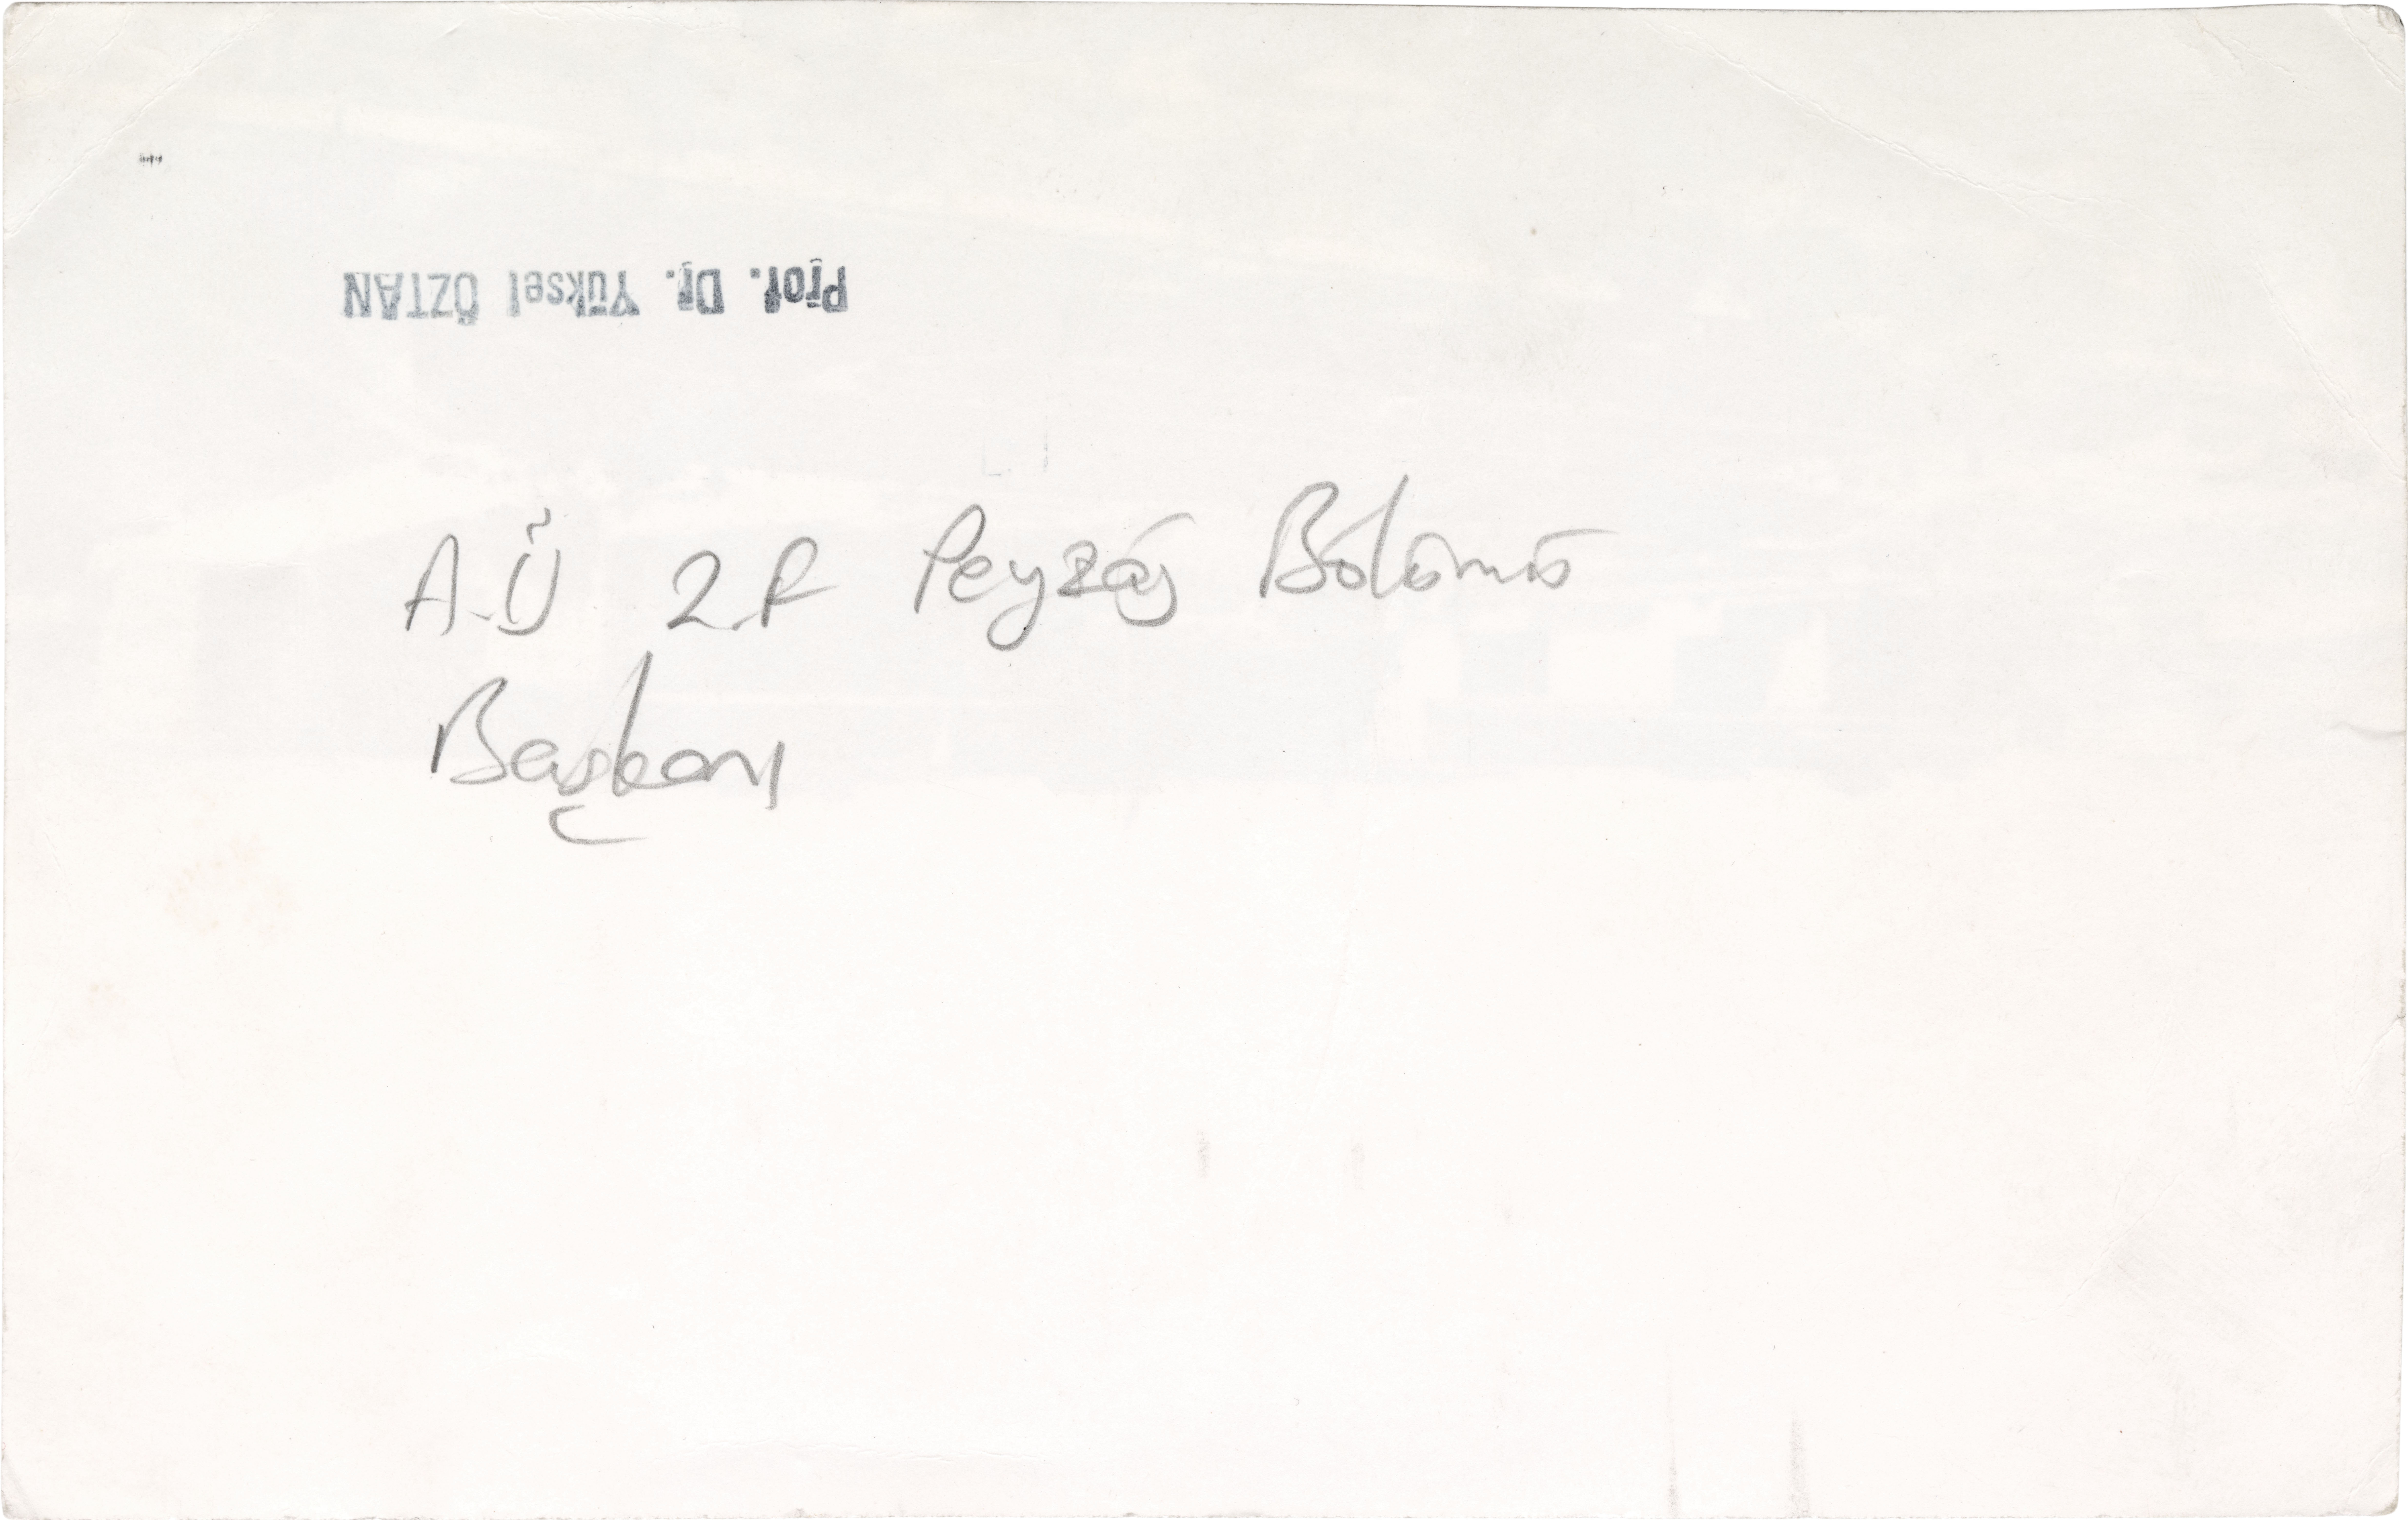 Prof. Dr. Yüksel ÖZTAN
A.Ü Z.F Peyzaj Bölümü
Başkanı